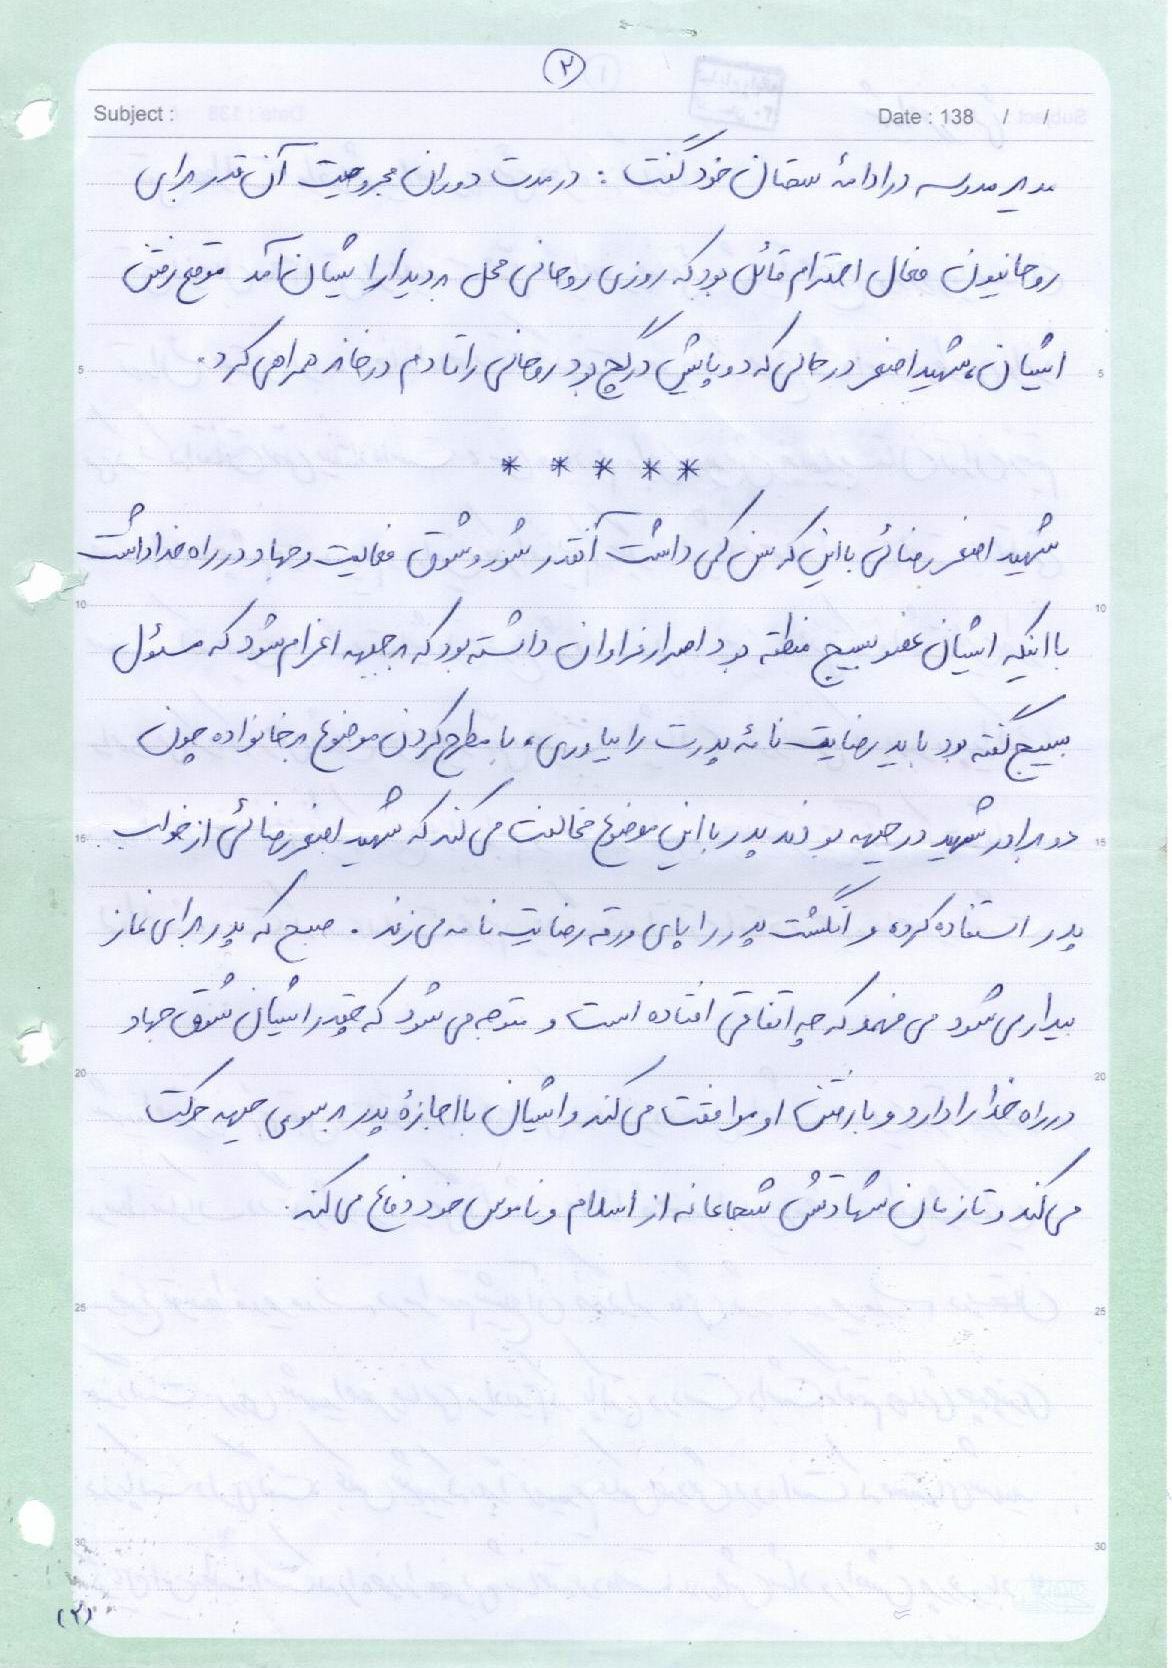 ۲
Subject :
Date : 138 / /
مدیر مدرسه در ادامهٔ سخنان خود گفت : در مدت دوران مجروحیت آن قدر برای
روحانیون فعال احترام قائل بود که روزی روحانی محل به دیدار ایشان آمد موقع رفتن
ایشان، شهید اصغر در حالی که دو پایش در گچ بود روحانی را تا دم در خانه همراهی کرد.
* * * * *
شهید اصغر رضائی با این که سن کمی داشت آنقدر شور و شوق فعالیت و جهاد در راه خدا داشت
با اینکه ایشان عضو بسیج منطقه بود اصرار فراوان داشته بود که به جبهه اعزام شود که مسئول
بسیج گفته بود باید رضایت نامهٔ پدرت را بیاوری، با مطرح کردن موضوع به خانواده چون
دو برادر شهید در جبهه بودند پدر با این موضوع مخالفت می کند که شهید اصغر رضائی از خواب
پدر استفاده کرده و انگشت پدر را پای ورقه رضایت نامه می زند . صبح که پدر برای نماز
بیدار می شود می فهمد که چه اتفاقی افتاده است و متوجه می شود که چقدر ایشان شوق جهاد
در راه خدا را دارد و با رفتن او موافقت می کند و ایشان با اجازهٔ پدر به سوی جبهه حرکت
می کند و تا زمان شهادتش شجاعانه از اسلام و ناموس خود دفاع می کند.
(۲)